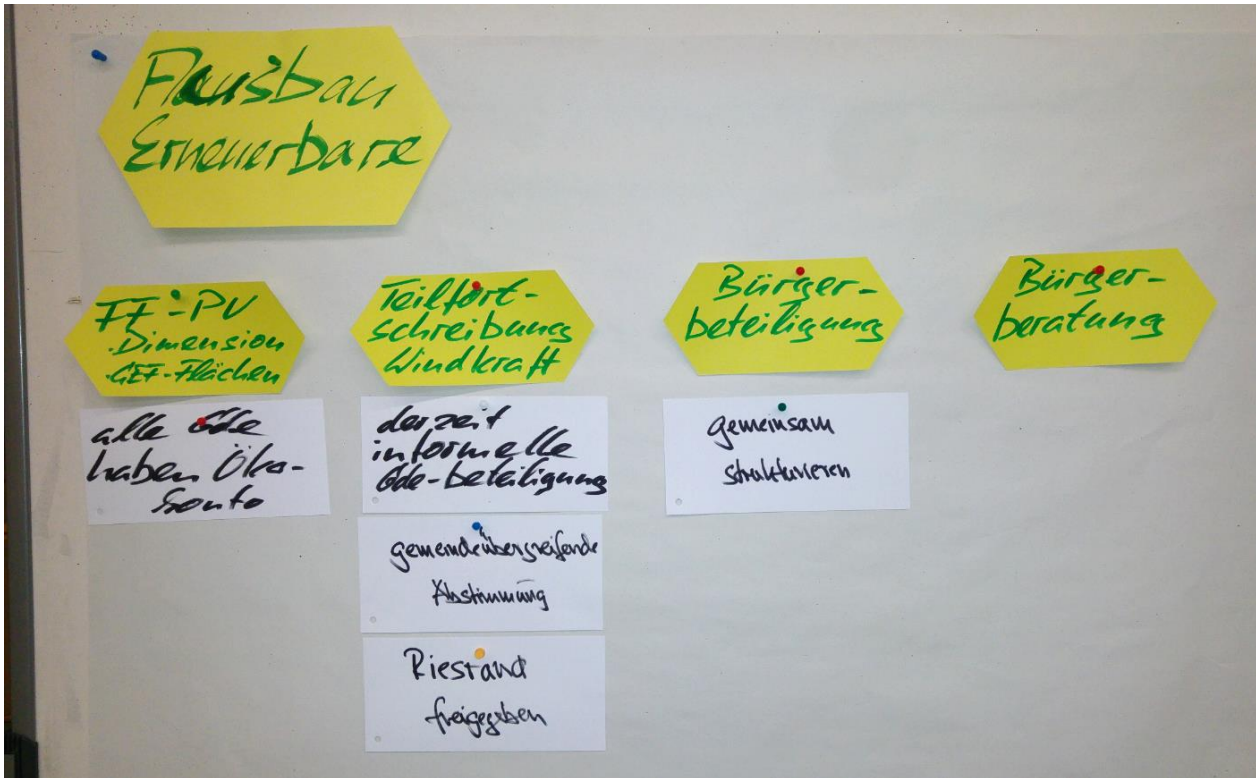 Ausbau
Erneuerbare
FF-PV
.Dimension
.GEF-Flächen
alle Gde
haben Öko-
Konto
Teilfort-
schreibung
Windkraft
derzeit
informelle
Gde-beteiligung
gemeindeübergreifende
Abstimmung
Riestand
freigegeben
Bürger-
beteiligung
gemeinsam
strukturieren
Bürger-
beratung